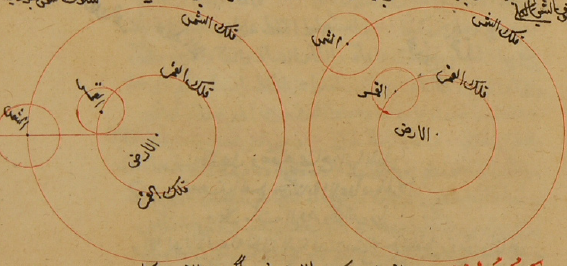 فلك الشمس
الشمس
فلك القمر
القمر
الارض
فلك الشمس
فلك القمر
القمر
الشمس
الارض
فلك القمر